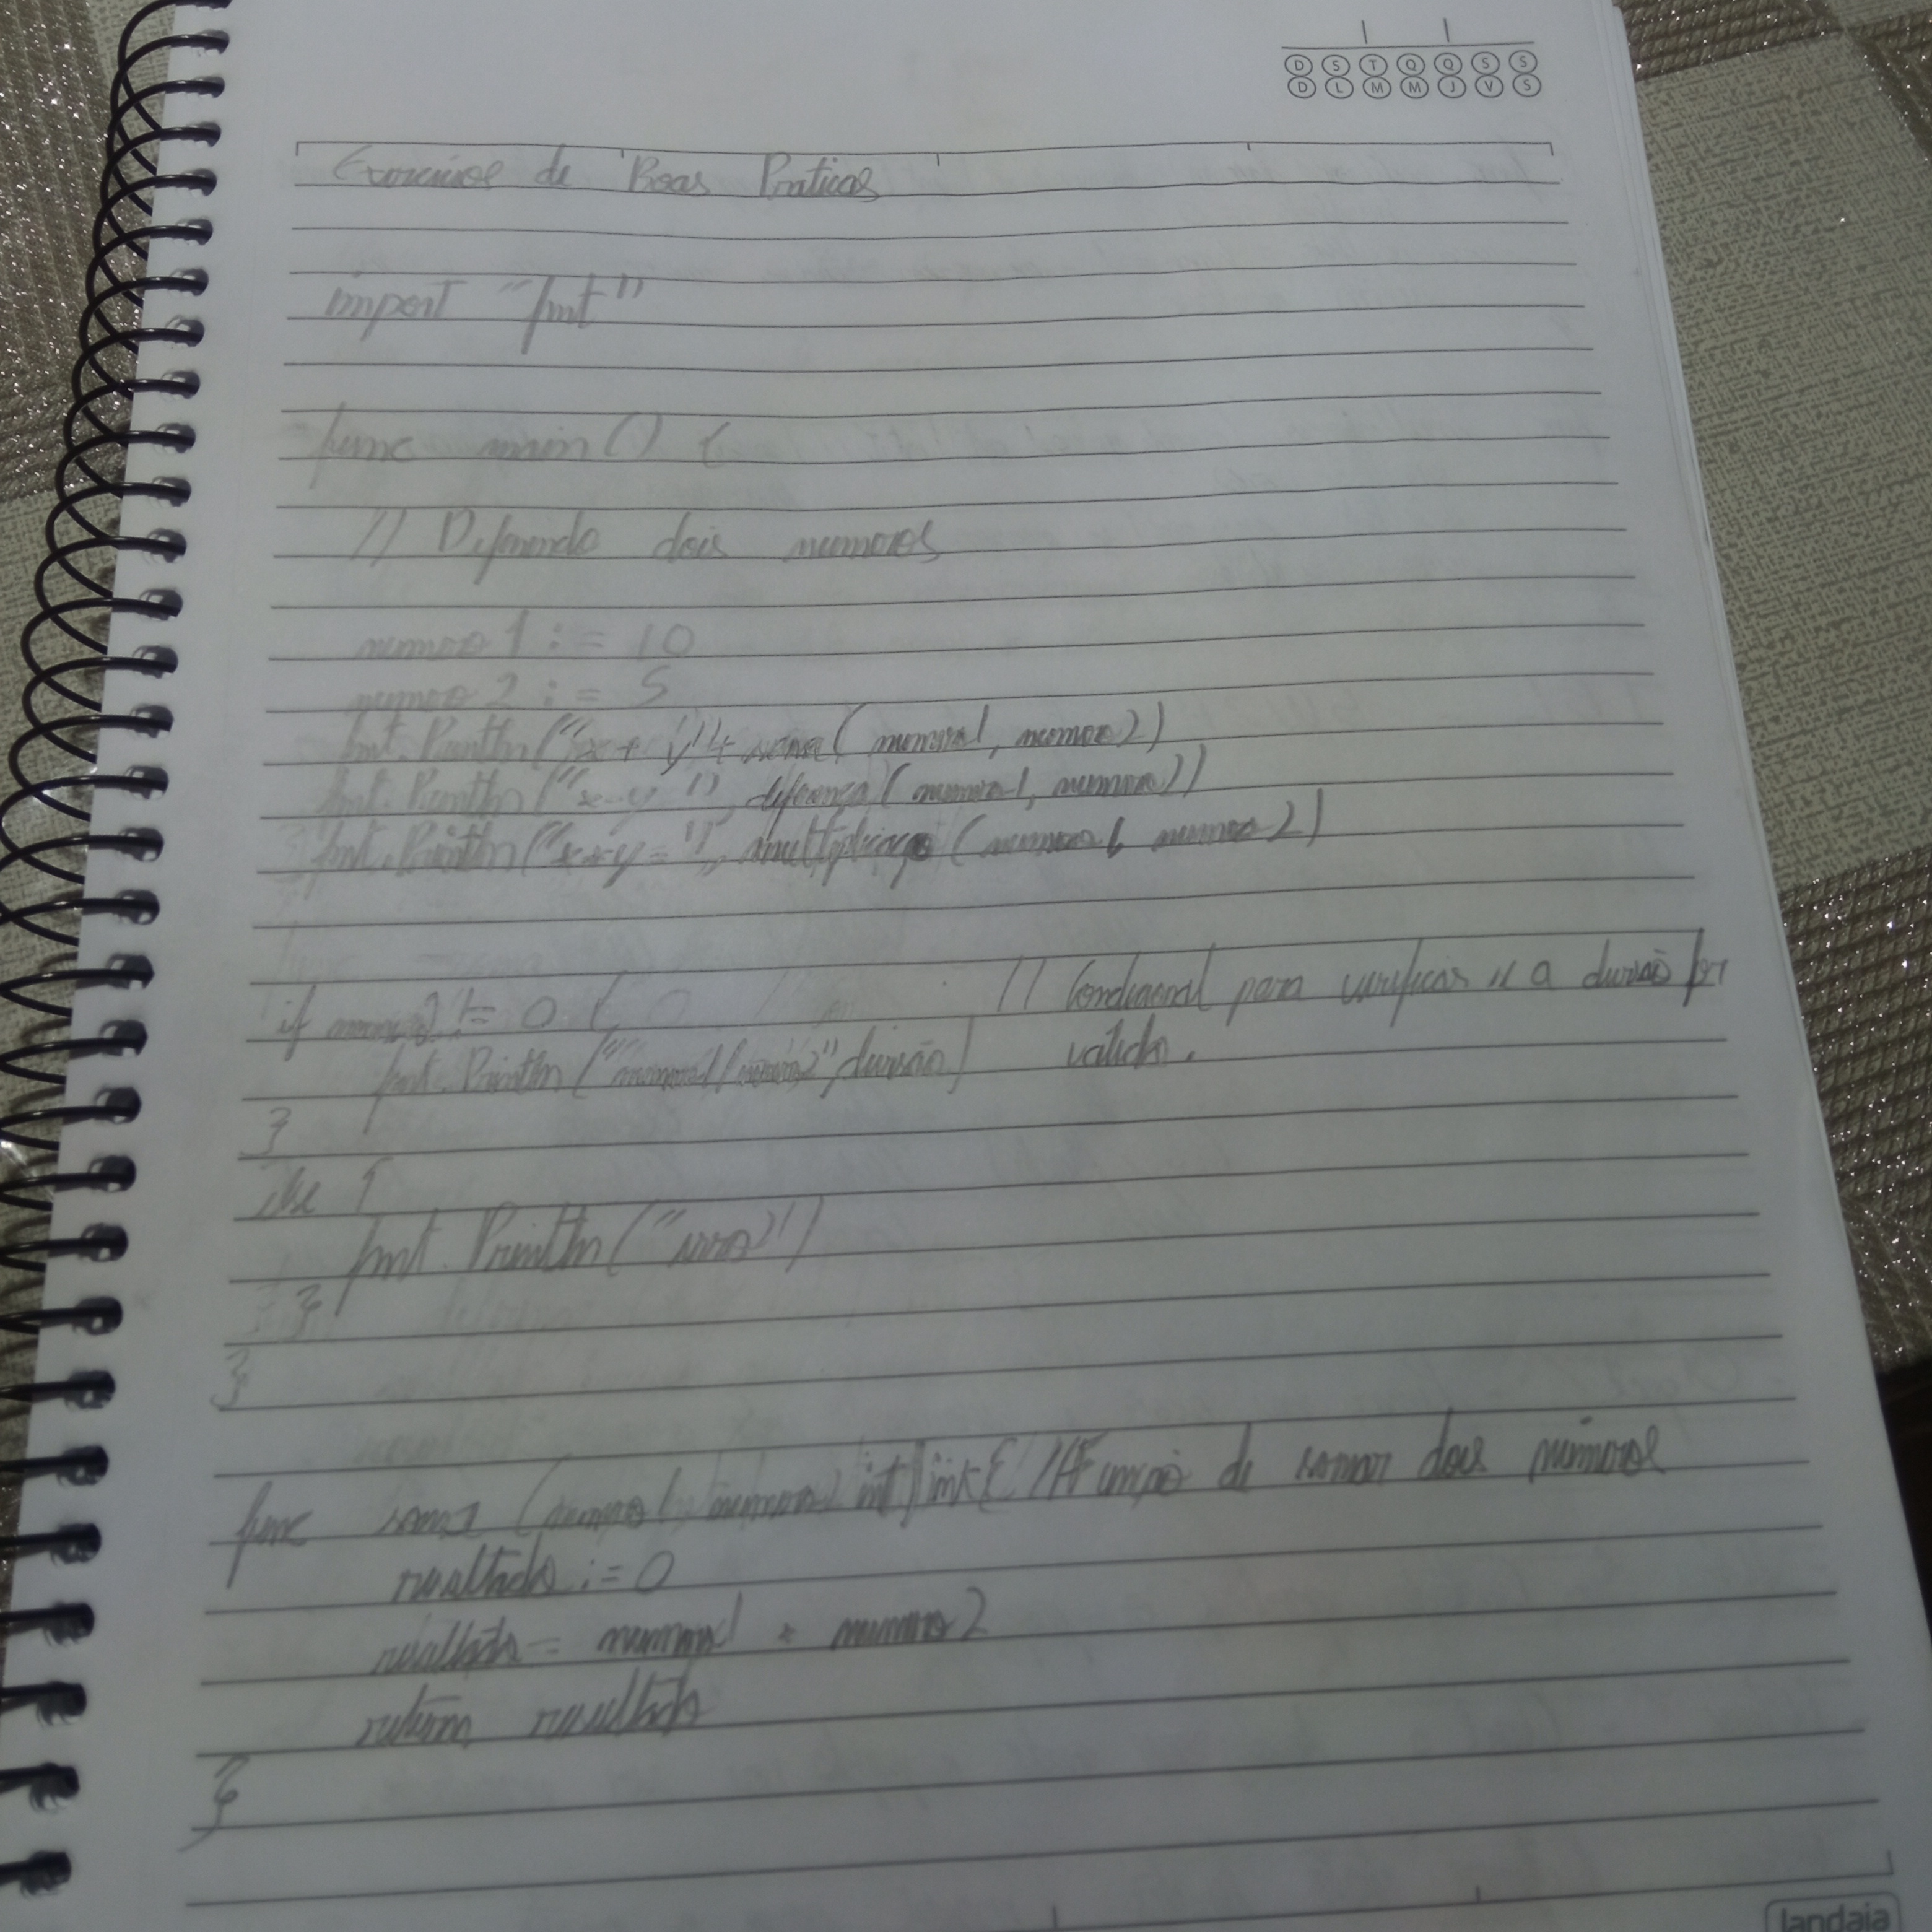 D S T Q Q S S
D L M M J V S
Exercicios de Boas Praticas
import "fmt"
func main() {
// Definindo dois numeros
numero1 := 10
numero2 := 5
fmt.Println("x + y"+ soma( numero1, numero2)
fmt.Println("x-y ", diferença( numero1, numero2))
fmt.Println("x*y = ", multiplicação( numero1, numero2)
if numero2 != 0 { // Condicional para verificar se a divisão for
fmt.Println("numero1/numero2", divisão) valida.
}
else {
fmt.Println("erro")
}
}
func soma (numero1, numero2 int) int { // Função de somar dois números
resultado := 0
resultado = numero1 + numero2
return resultado
}
landaia